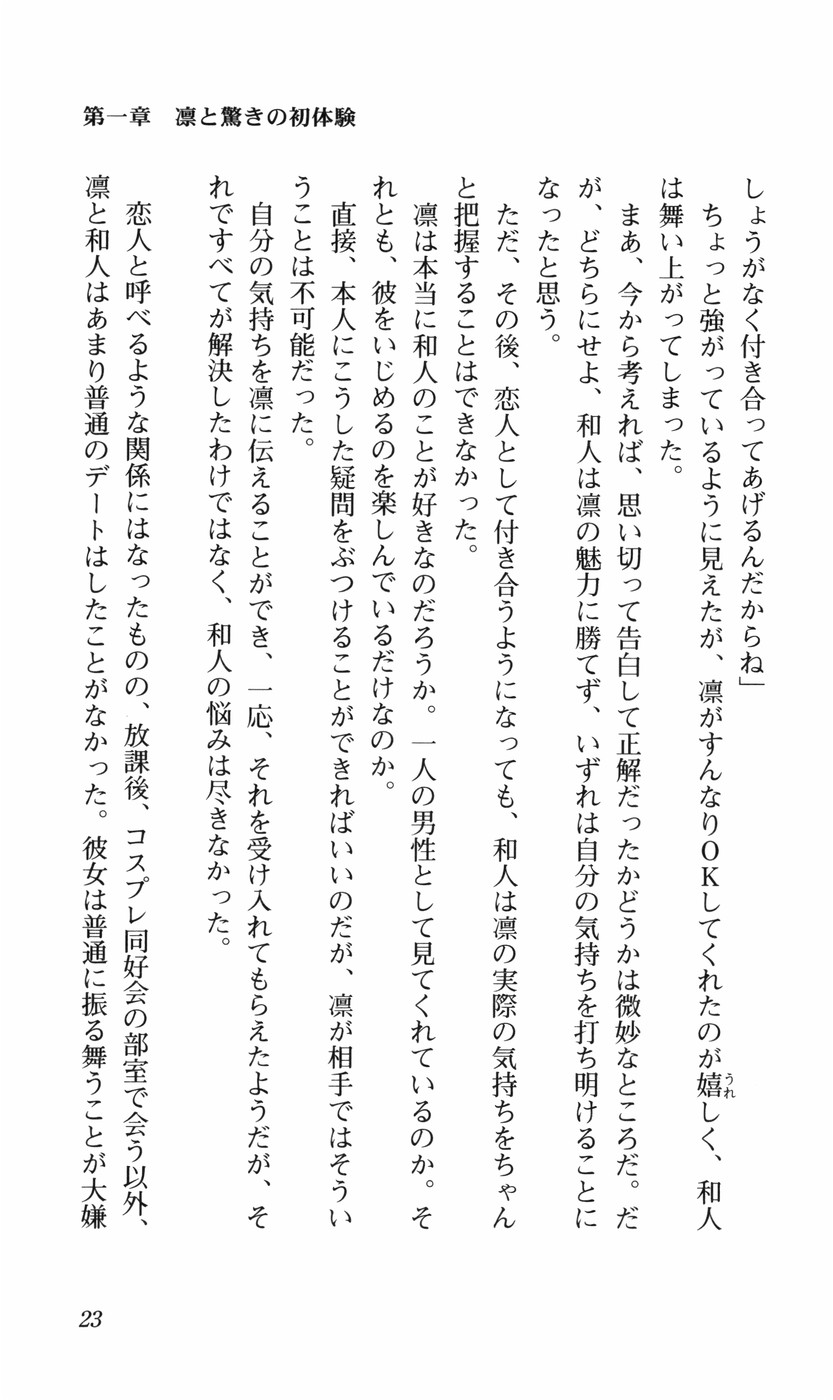 第一章　凛と驚きの初体験
しょうがなく付き合ってあげるんだからね」
　ちょっと強がっているように見えたが、凛がすんなりOKしてくれたのが嬉しく、和人
うれ
は舞い上がってしまった。
　まあ、今から考えれば、思い切って告白して正解だったかどうかは微妙なところだ。だ
が、どちらにせよ、和人は凛の魅力に勝てず、いずれは自分の気持ちを打ち明けることに
なったと思う。
　ただ、その後、恋人として付き合うようになっても、和人は凛の実際の気持ちをちゃん
と把握することはできなかった。
　凛は本当に和人のことが好きなのだろうか。一人の男性として見てくれているのか。そ
れとも、彼をいじめるのを楽しんでいるだけなのか。
　直接、本人にこうした疑問をぶつけることができればいいのだが、凛が相手ではそうい
うことは不可能だった。
　自分の気持ちを凛に伝えることができ、一応、それを受け入れてもらえたようだが、そ
れですべてが解決したわけではなく、和人の悩みは尽きなかった。
　恋人と呼べるような関係にはなったものの、放課後、コスプレ同好会の部室で会う以外、
凛と和人はあまり普通のデートはしたことがなかった。彼女は普通に振る舞うことが大嫌
23